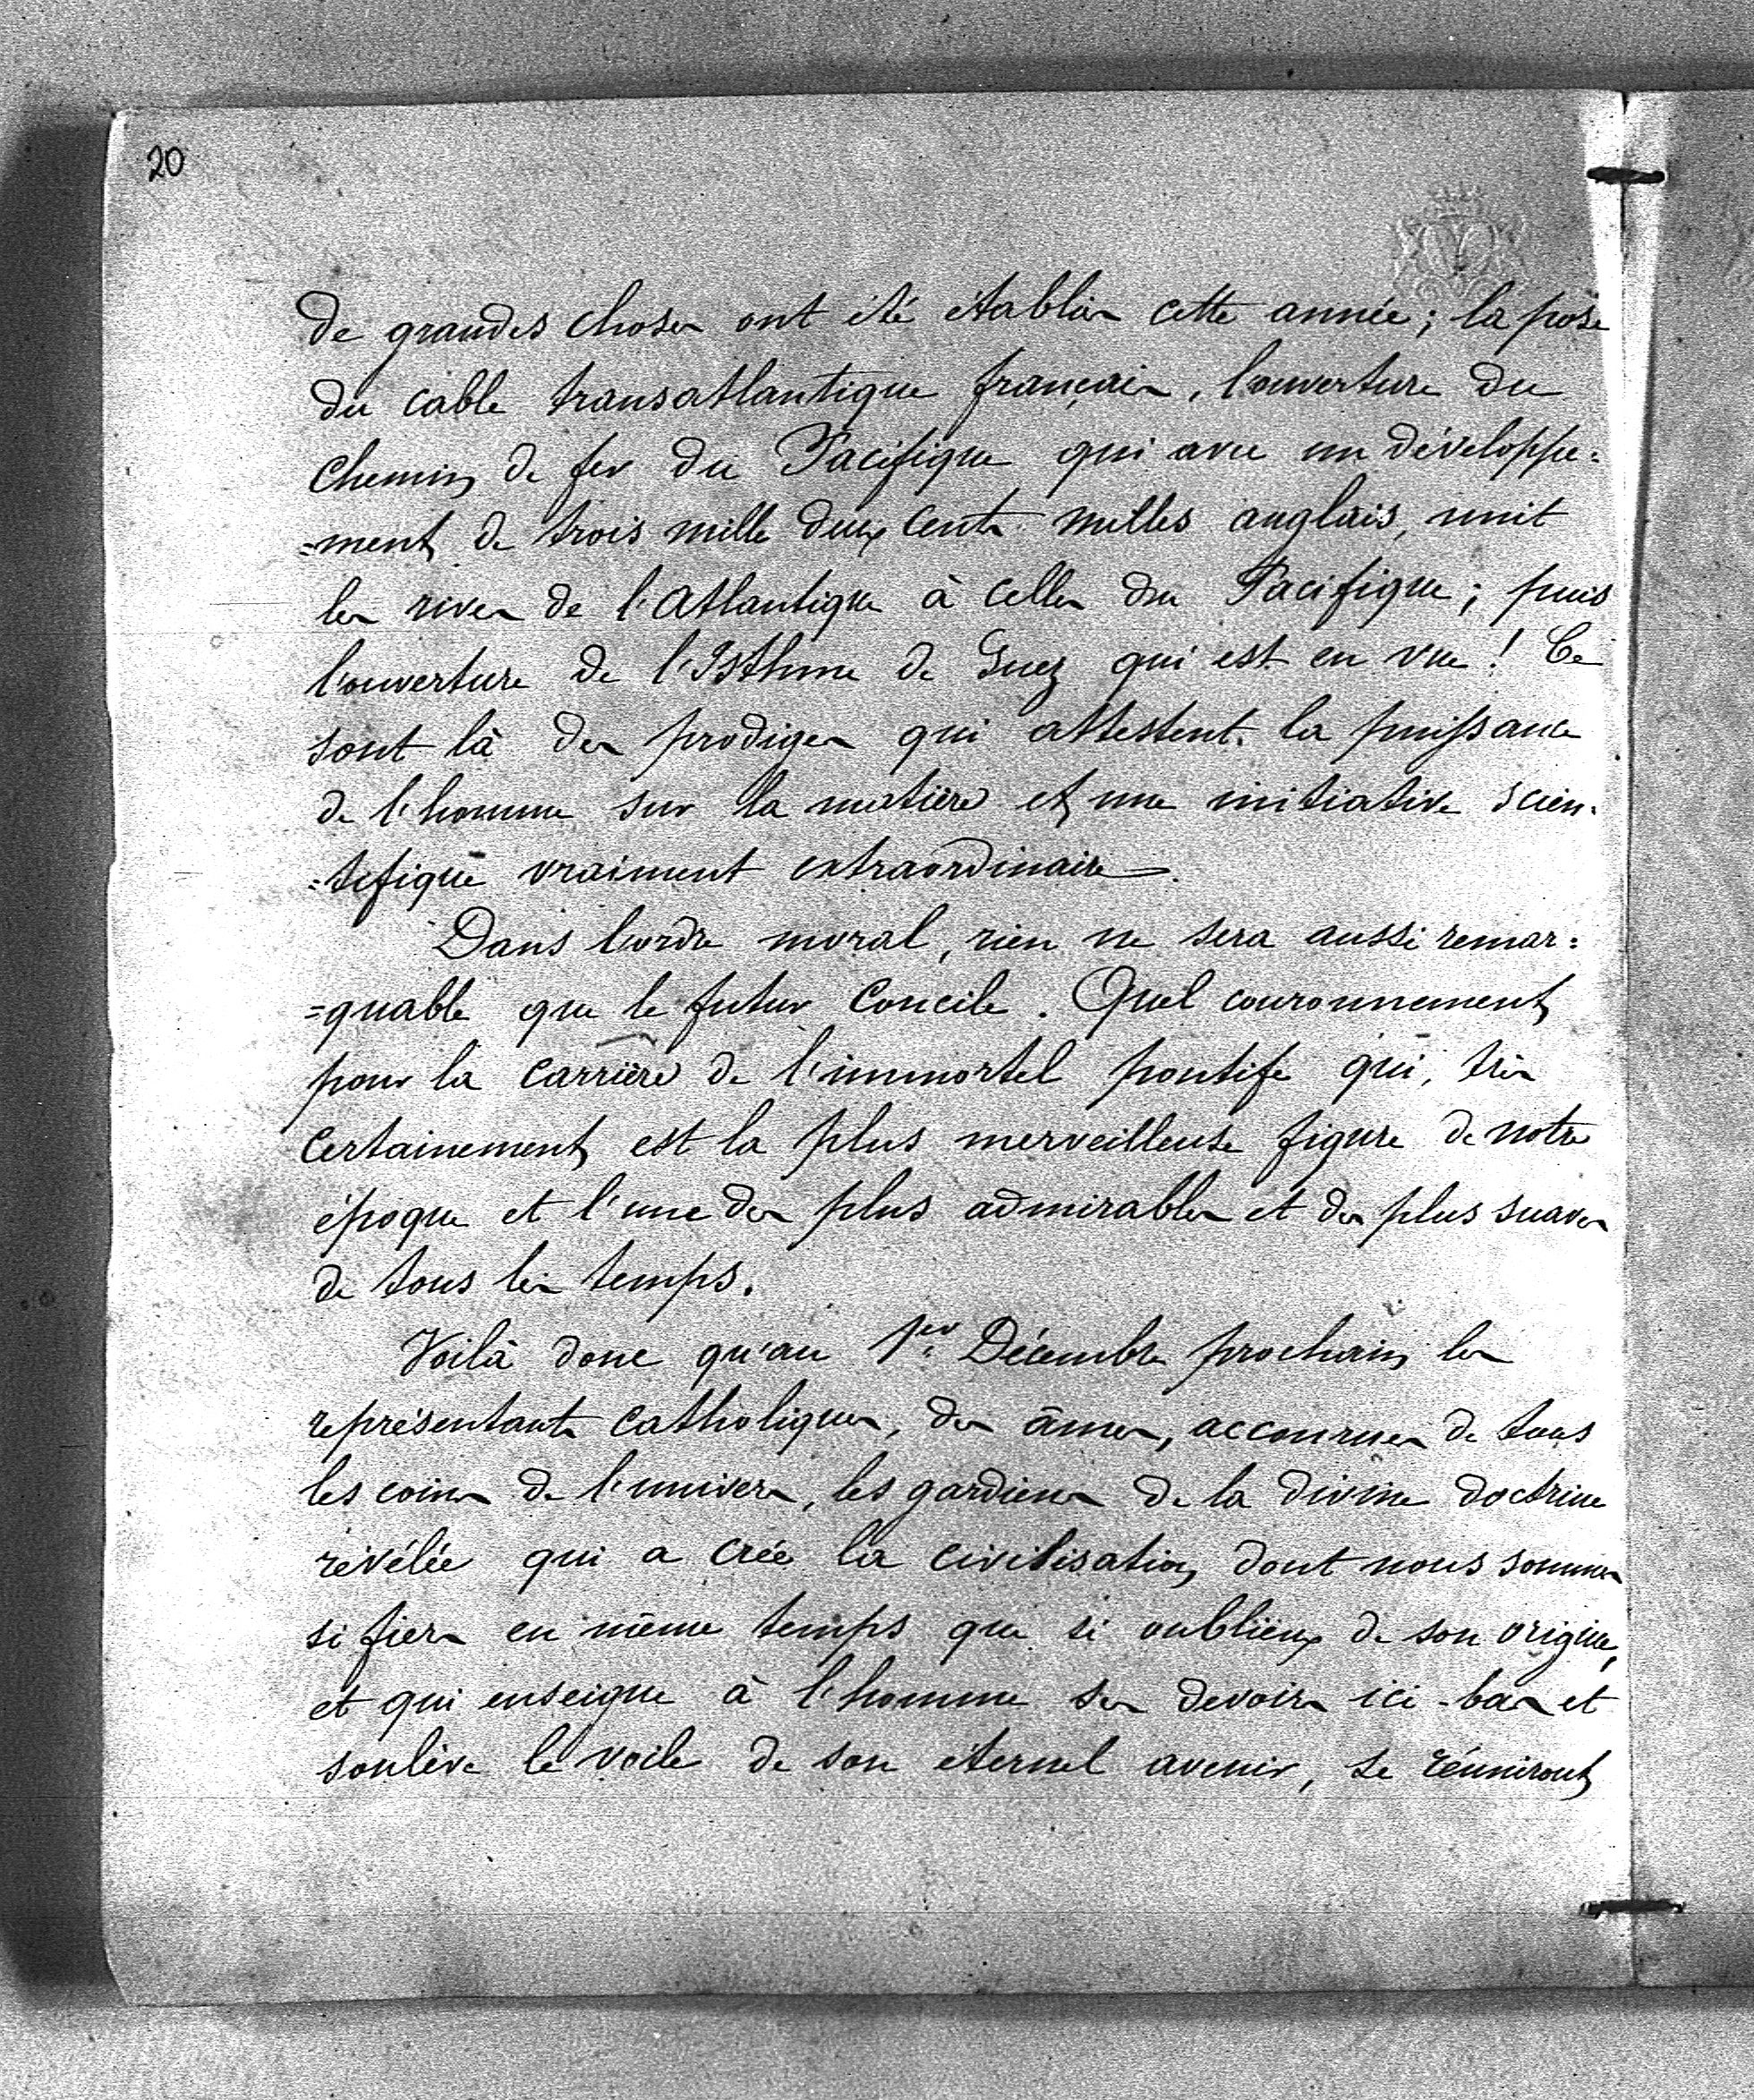 20
De grandes choses ont été établies cette année ; la pose
du cable transatlantique français, l'ouverture du
Chemin de fer du Pacifique qui avec un développe=
=ment de trois mille deux cents milles anglais, unit
les rives de l'Atlantique à celles du Pacifique ; puis
l'ouverture de l'Isthme de Suez qui est en vue ! Ce
sont là des prodiges qui attestent la puissance
de l'homme sur la matière et une initiative scien=
=tifique vraiment extraordinaire.
Dans l'ordre moral, rien ne sera aussi remar=
=quable que le futur Concile. Quel couronnement
pour la carrière de l'immortel pontife qui, très
certainement est la plus merveilleuse figure de notre
époque et l'une des plus admirables et des plus suaves
de tous les temps.
Voilà donc qu'au 1er Décembre prochain les
représentants catholiques, des âmes, accourues de tous
les coins de l'univers, les gardiens de la divine doctrine
révélée qui a créé la civilisation dont nous sommes
si fiers en même temps que si oublieux de son origine,
et qui enseigne à l'homme ses devoirs ici-bas et
soulève le voile de son éternel avenir, se réuniront